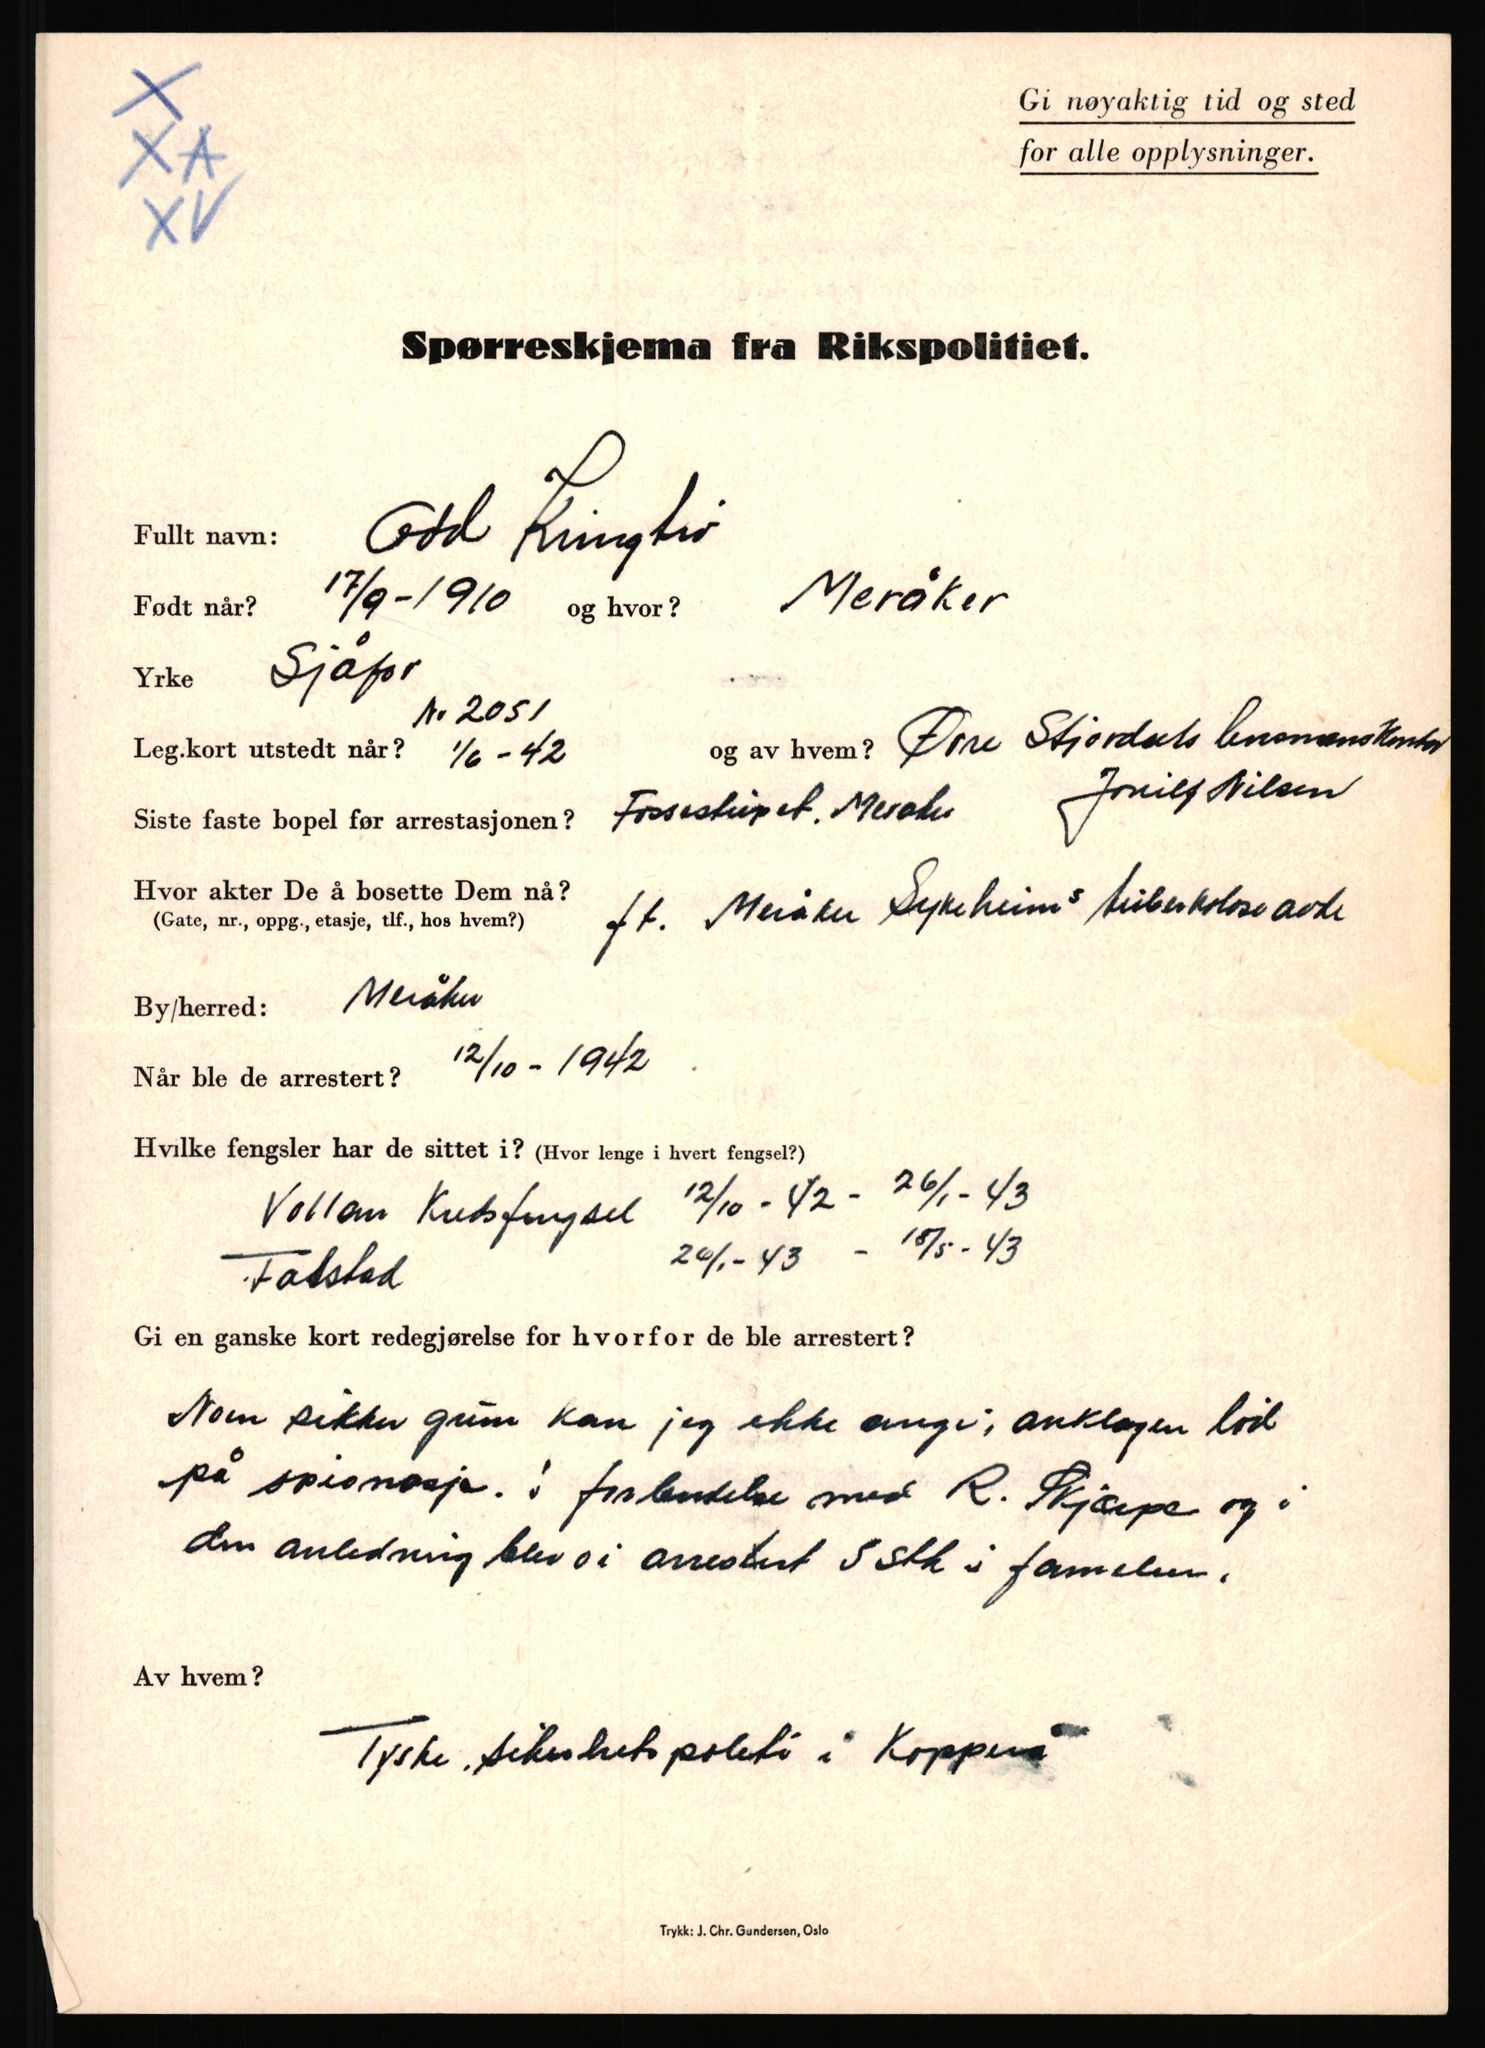 X
XA
XV
Gi nøyaktig tid og sted
for alle opplysninger.
Spørreskjema fra Rikspolitiet.
Fullt navn: Odd Kringtrø
Født når? 17/9-1910 og hvor? Meråker
Yrke Sjåfør
Nr 2051
Leg.kort utstedt når? 1/6-42 og av hvem? Øvre Stjørdals lensmannskontor
Siste faste bopel før arrestasjonen? Fossestupet. Meråker Nilsen
Hvor akter De å bosette Dem nå?
(Gate, nr., oppg., etasje, tlf., hos hvem?) f t. Meråker Sykeheims tuberkolose avde
By/herred: Meråker
Når ble de arrestert? 12/10-1942
Hvilke fengsler har de sittet i? (Hvor lenge i hvert fengsel?)
Vollan Kretsfengsel 12/10-42 - 26/1-43
Falstad 26/1-43 - 18/5-43
Gi en ganske kort redegjørelse for hvorfor de ble arrestert?
Noen sikker grunn kan jeg ikke angi, anklagen lød
på spionasje. i forbindelse med R. Skjærpe og i
den anledning blev vi arrestert 5 stk i familien.
Av hvem?
Tyske sikerhetspoleti i Kopperå
Trykk: J. Chr. Gundersen, Oslo